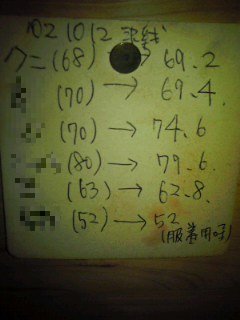 021012 記録
クニ(68) → 69.2
(70) → 69.4.
(70) → 74.6
(80) → 79.6.
(63) → 62.8.
(52) → 52
(服着用時)